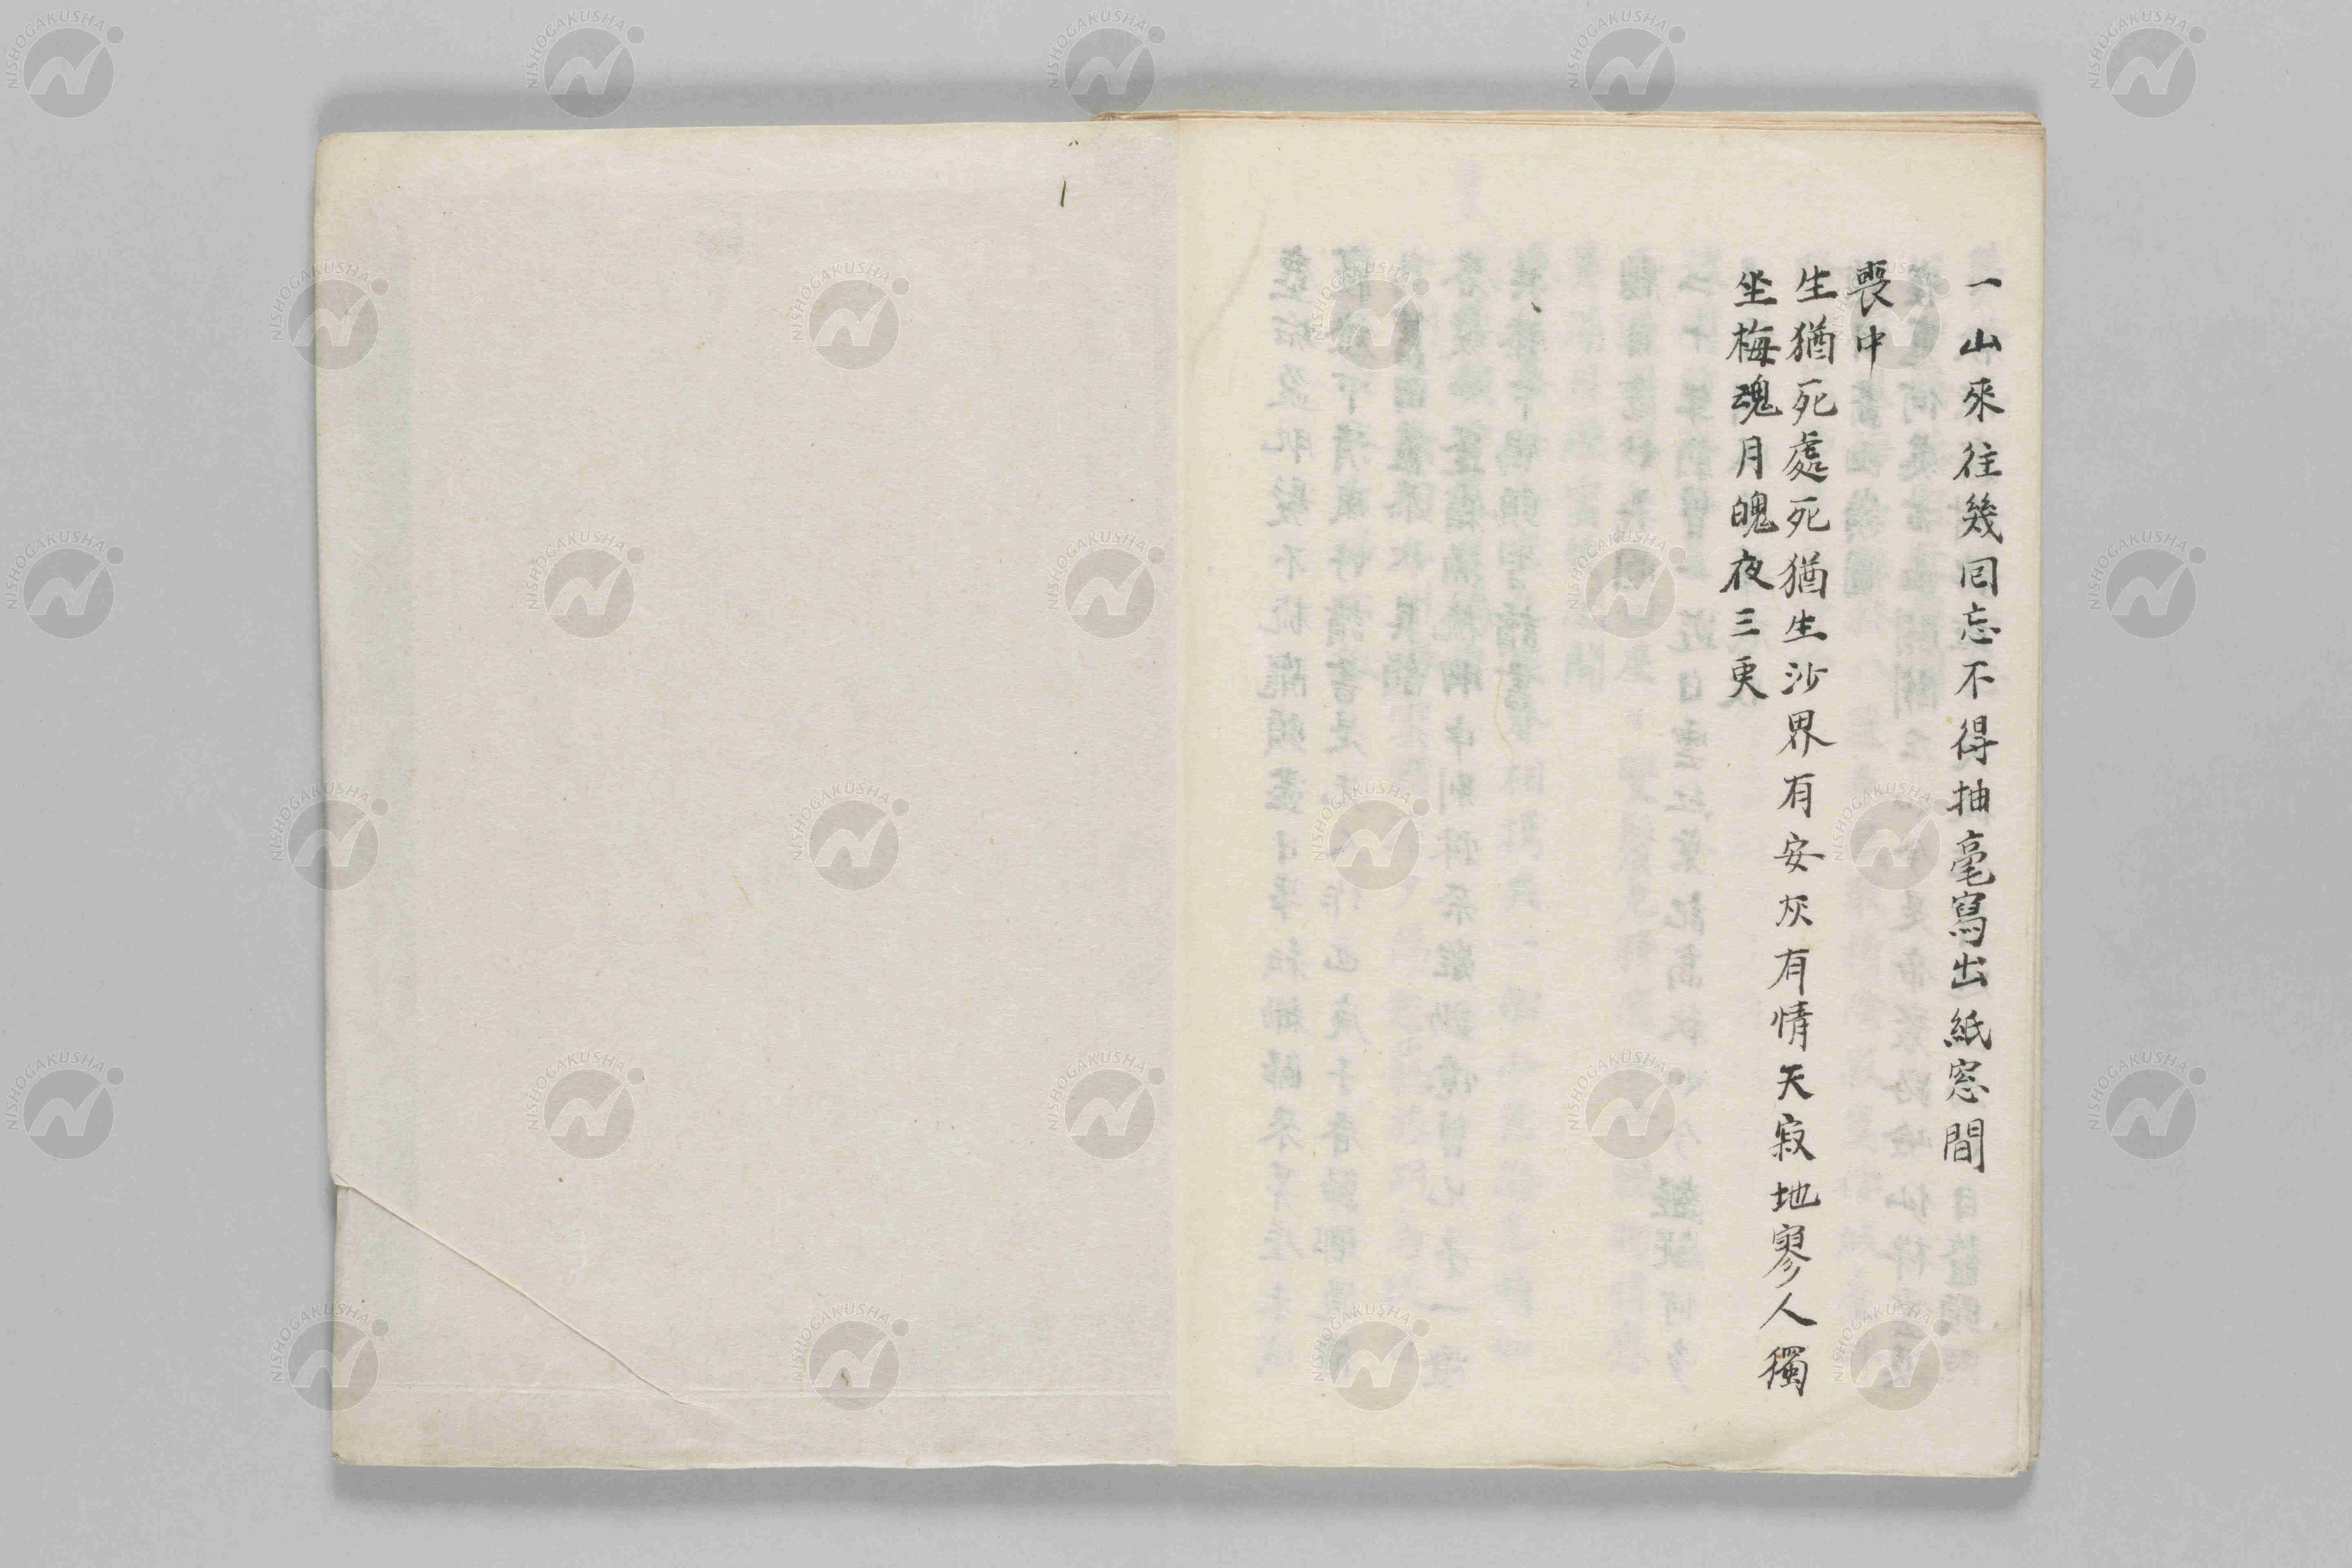 一山來往幾回忘不得抽毫寫出紙窓間
喪中
生猶死處死猶生沙界有安灰有情天寂地寥人獨
坐梅魂月魄夜三更
NISHOGAKUSHA